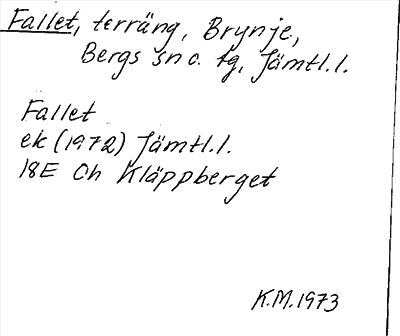 Fallet, terräng, Brynje,
Bergs sn o. tg, Jämtl.l.
Fallet
ek (1972) Jämtl.l.
18E Oh Kläppberget
K.M. 1973